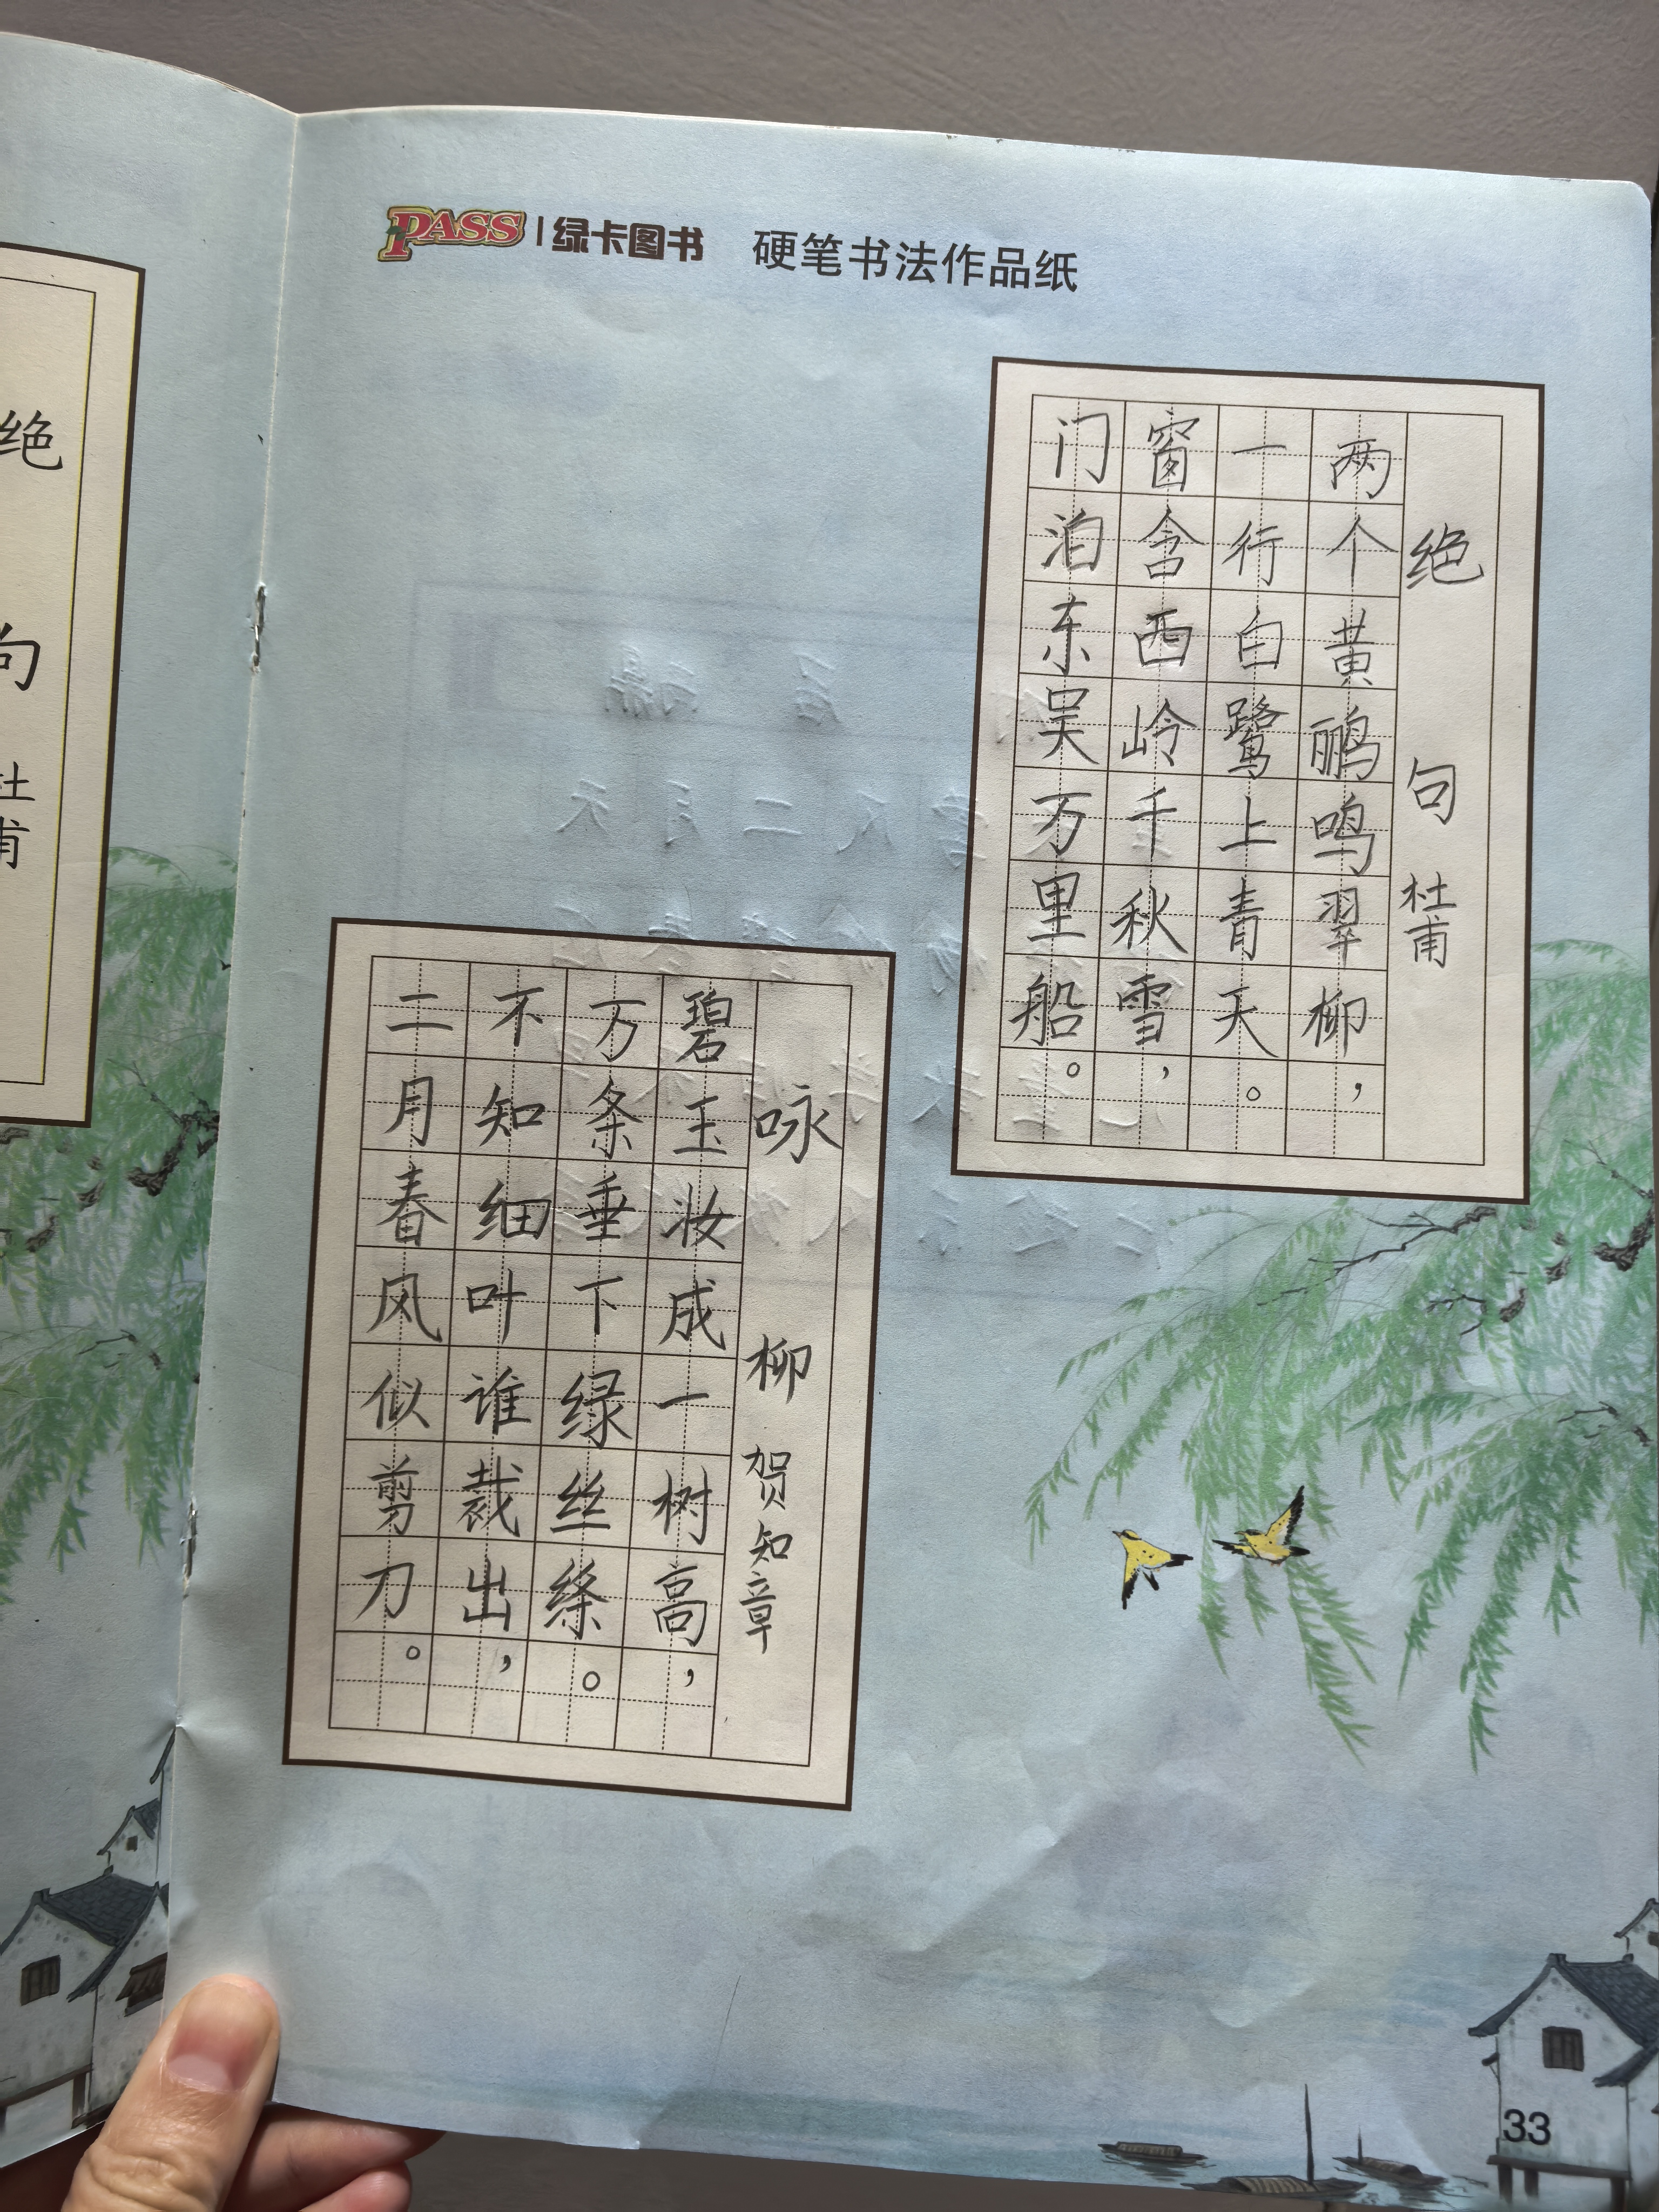 PASS 绿卡图书 硬笔书法作品纸
绝句 杜甫
两个黄鹂鸣翠柳，
一行白鹭上青天。
窗含西岭千秋雪，
门泊东吴万里船。
咏柳 贺知章
碧玉妆成一树高，
万条垂下绿丝绦。
不知细叶谁裁出，
二月春风似剪刀。
绝句 杜甫
33